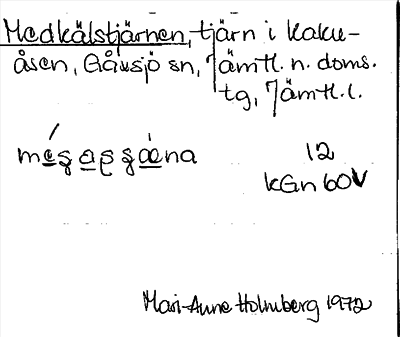 Medkälstjärnen, tjärn i Kaku-
åsen, Gåxsjö sn, Jämtl. n. doms.
tg, Jämtl. l.
12
kGn 60V
Mari-Anne Holmberg 1972